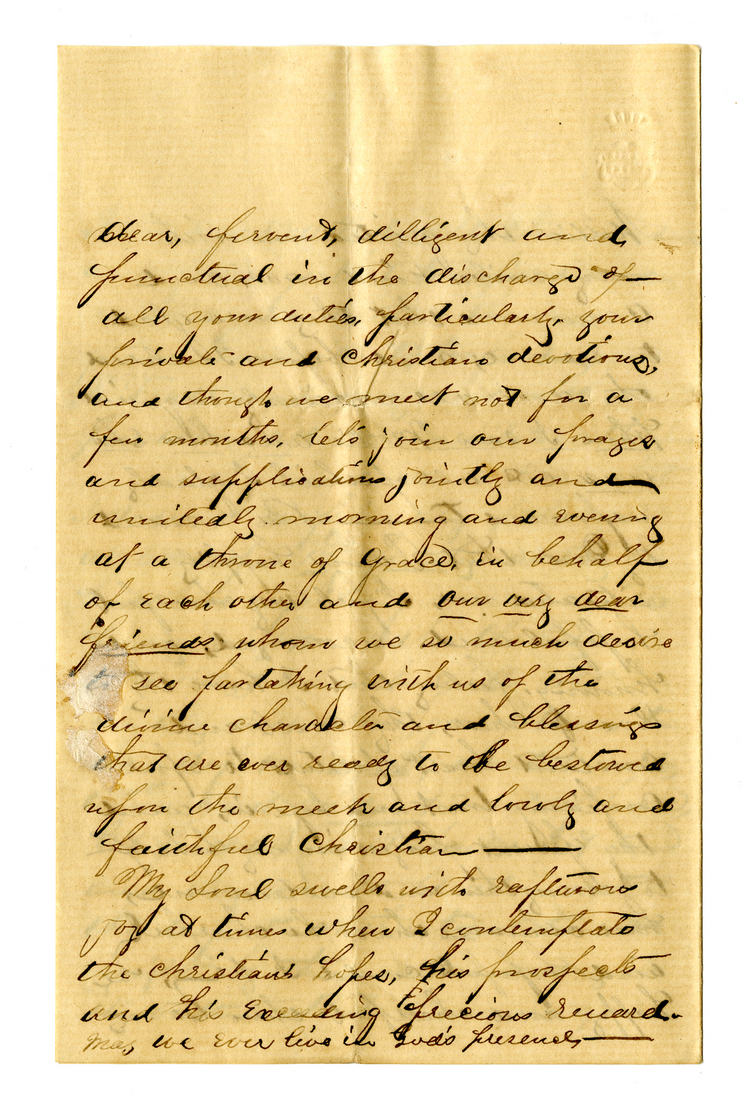 dear, fervent, dilligent and
punctual in the discharge of
all your duties, particularly your
private and Christian devotions,
and though we meet not for a
few months, let's join our prayers
and supplications jointly and
unitedly morning and evening
at a throne of Grace, in behalf
of each other and our very dear
friends whom we so much desire
to see partaking with us of the
divine character and blessings
that are ever ready to be bestowed
upon the meek and lowly and
faithful Christian —
My Soul swells with rapturous
joy at times when I contemplate
the christian's hopes, his prospects
and his Exceeding precious reward.
May we ever live in God's presence —